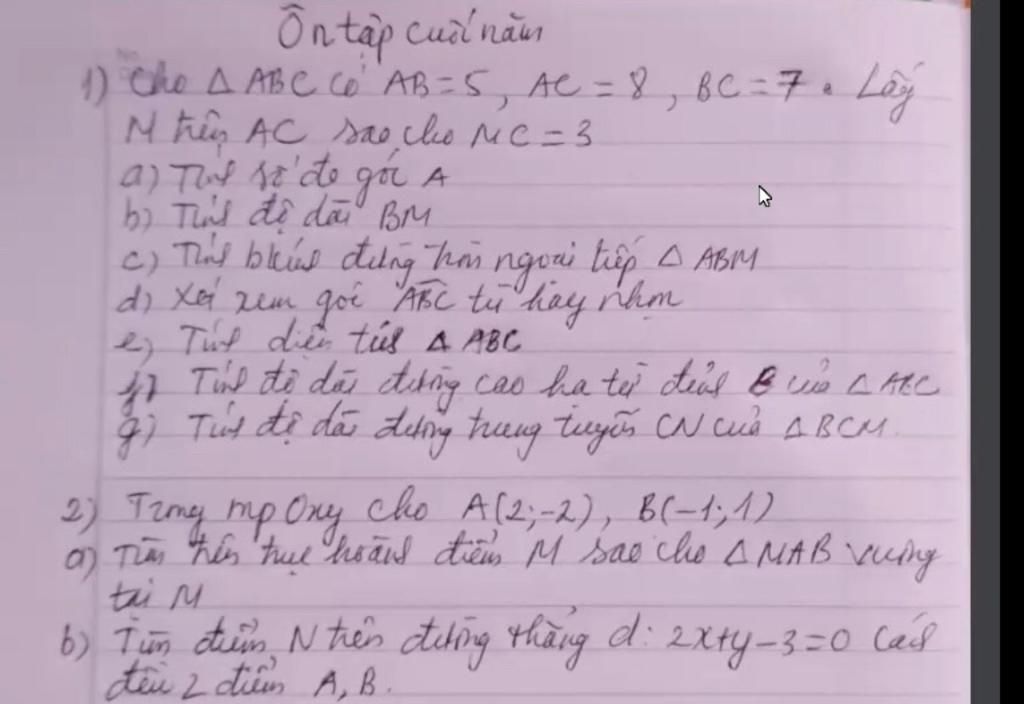 Ôn tập cuối năm
1) Cho △ ABC có AB = 5, AC = 8, BC = 7. Lấy
M trên AC sao cho MC = 3
a) Tính số đo góc A
b) Tính độ dài BM
c) Tính bkính đường tròn ngoại tiếp △ ABM
d) Xét xem góc ABC tù hay nhọn
e) Tính diện tích △ ABC
f) Tính độ dài đường cao hạ từ đỉnh B của △ ABC
g) Tính độ dài đường trung tuyến CN của △ BCM.
2) Trong mp Oxy cho A(2;-2), B(-1;1)
a) Tìm trên trục hoành điểm M sao cho △ MAB vuông
tại M
b) Tìm điểm N trên đường thẳng d: 2x+y-3=0 cách
đều 2 điểm A, B.